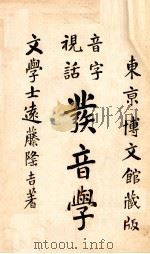 東京博文館藏版
音字
視話
發音學
文學士遠藤隆吉著